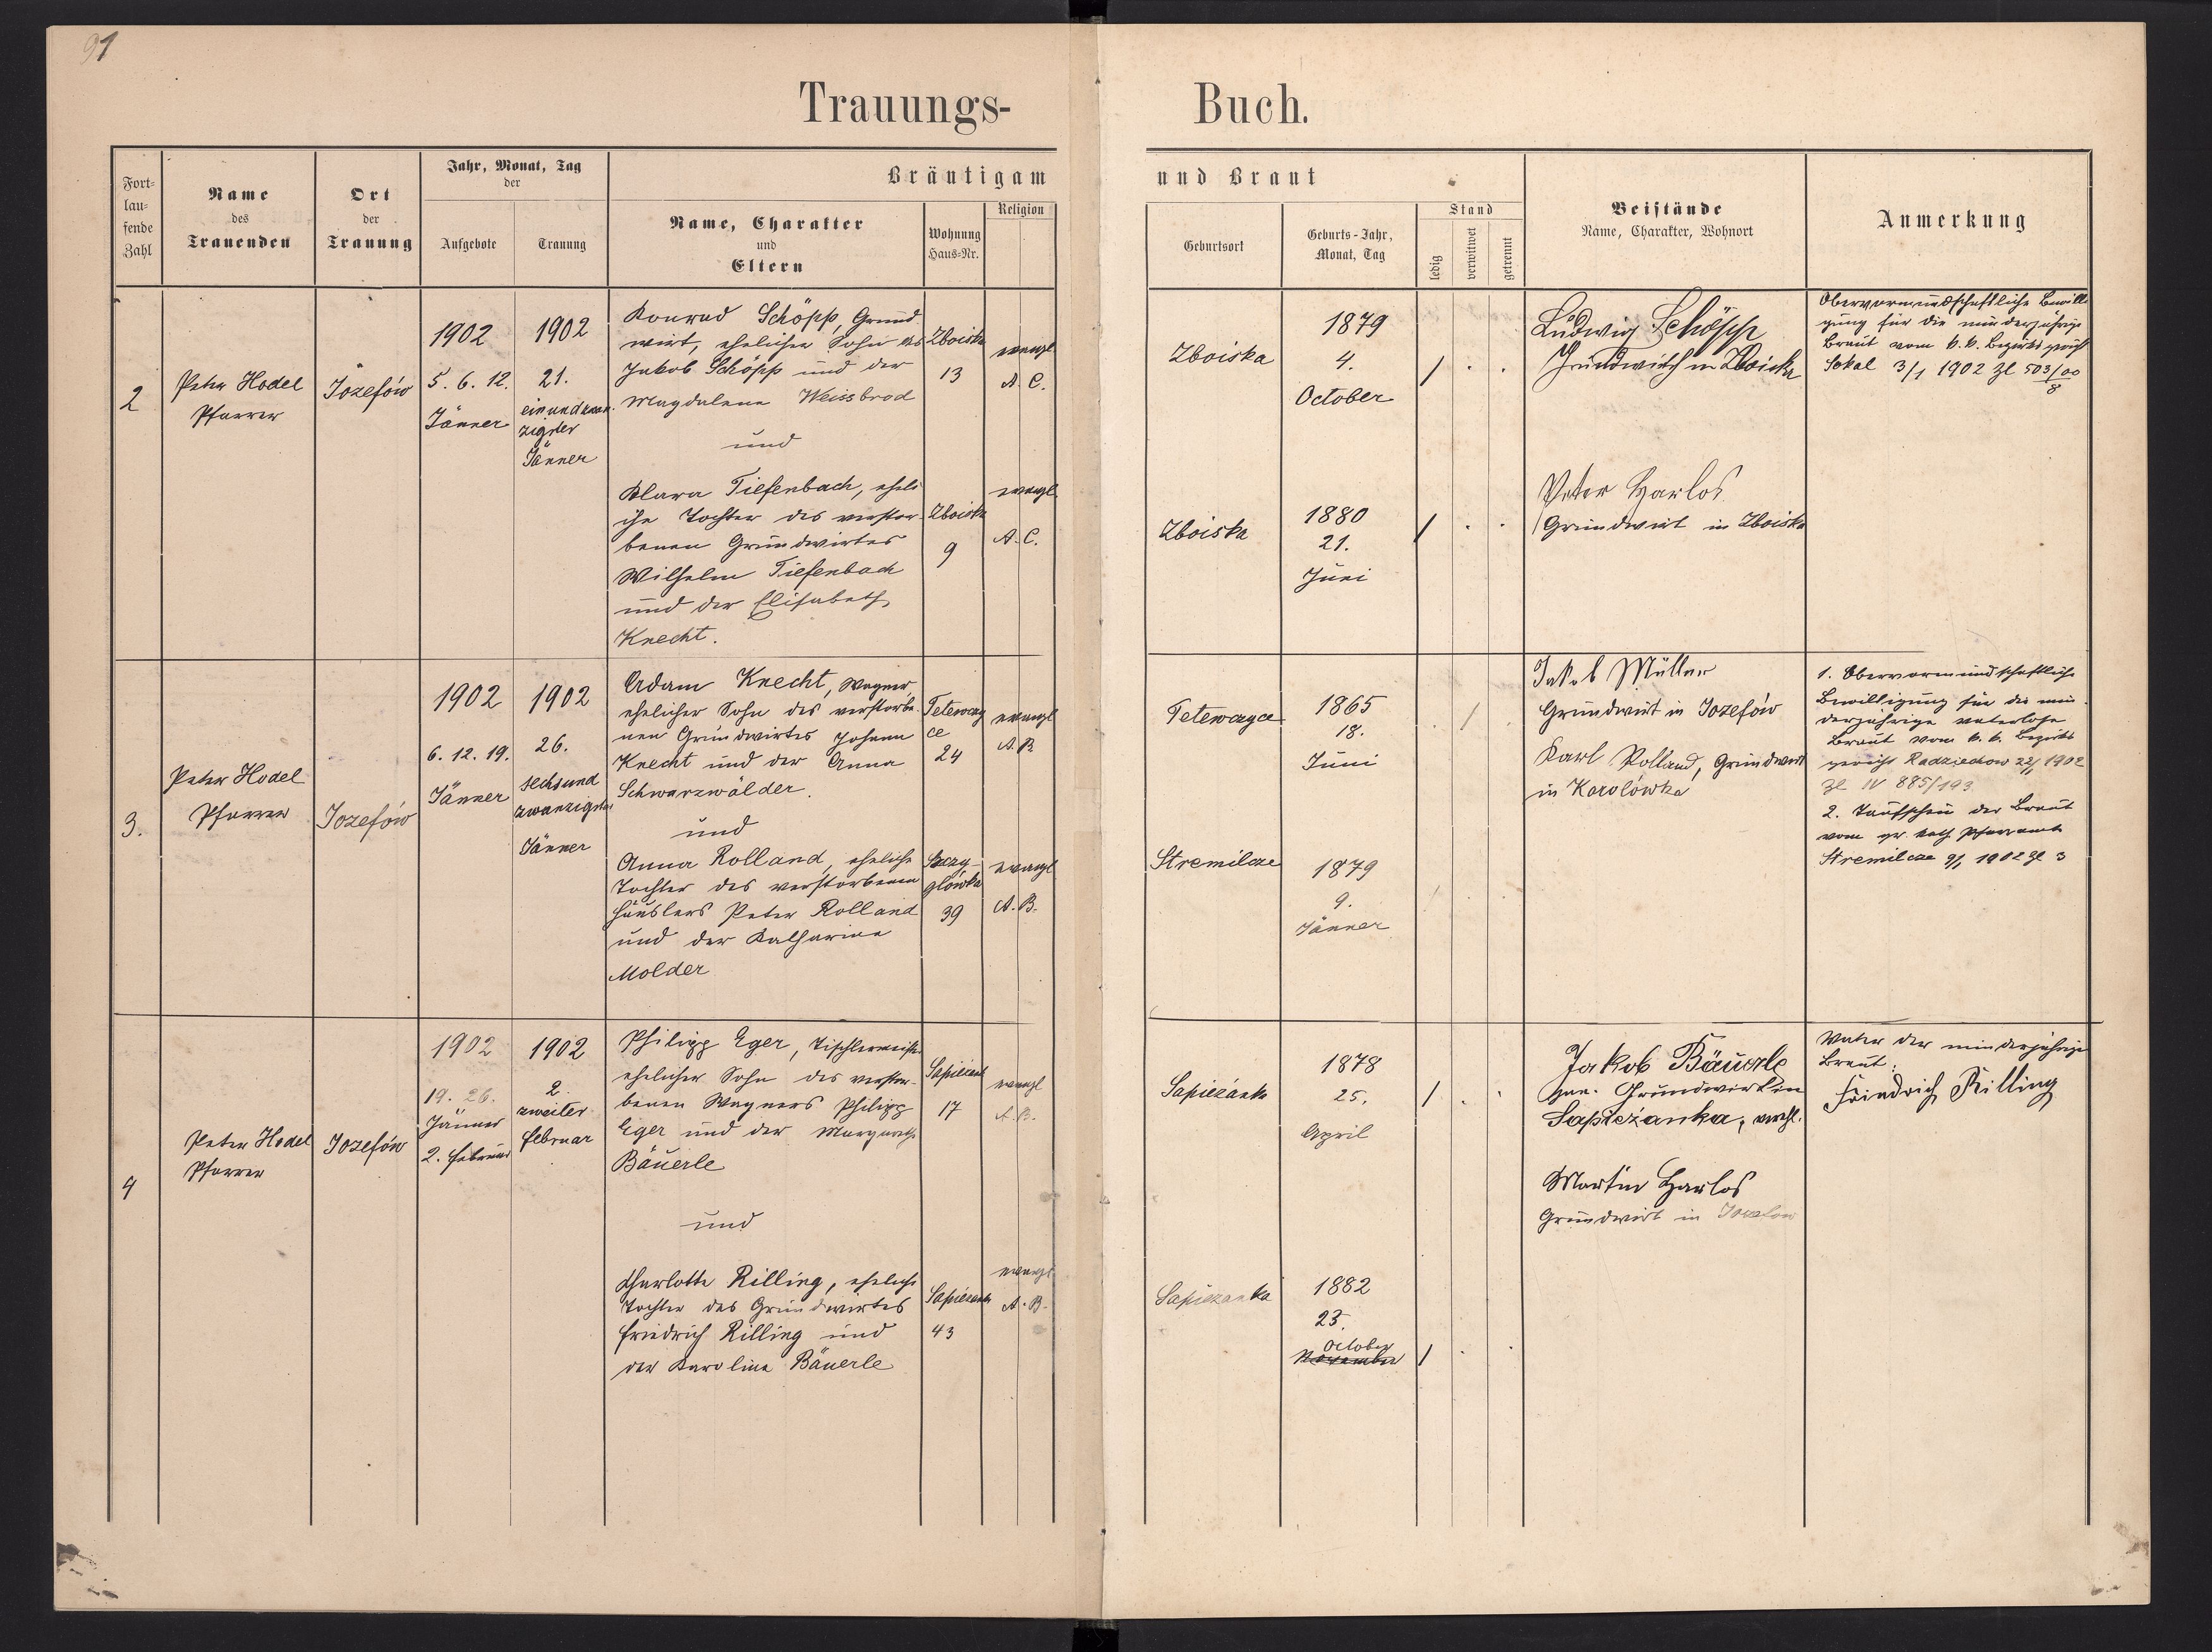 91
Trauungs-Buch.
Fort-
lau-
fende
Zahl
Name
des
Trauenden
Ort
der
Trauung
Jahr, Monat, Tag
der
Aufgebote
Trauung
Bräutigam und Braut
Name, Charakter
und
Eltern
Wohnung
Haus-Nr.
Religion
Geburtsort
Geburts-Jahr,
Monat, Tag
Stand
ledig
verwitwet
getrennt
Beistände
Name, Charakter, Wohnort
Anmerkung
2
Peter Hodel
Pfarrer
Jozefów
1902
5. 6. 12.
Jänner
1902
21.
einundzwan-
zigster
Jänner
Konrad Schöpp, Grund-
wirt, ehelicher Sohn des
Jakob Schöpp und der
Magdalena Weissbrod
Zboiska
13
evangl.
A. C.
und
Klara Tiefenbach, eheli
che Tochter des verstor-
benen Grundwirtes
Wilhelm Tiefenbach
und der Elisabeth
Knecht.
Zboiska
9
evangl.
A. C.
Zboiska
1879
4.
October
/ . .
Zboiska
1880
21.
Juni
/ . .
Ludwig Schöpp
Grundwirth in Zboiska
Peter Harlos
Grundwirt in Zboiska
Obervormundschaftliche Bewilli
gung für die minderjährige
Braut vom k.k. Bezirksgericht
Sokal 3/1 1902 Zl 503/00
8
3.
Peter Hodel
Pfarrer
Jozefów
1902
6. 12. 19.
Jänner
1902
26.
sechsund
zwanzigster
Jänner
Adam Knecht, Wagner,
ehelicher Sohn des verstorbe-
nen Grundwirtes Johann
Knecht und der Anna
Schwarzwälder.
Tetewczy
ce
24
evangl
A. B.
und
Anna Rolland, eheliche
Tochter des verstorbenen
Häuslers Peter Rolland
und der Katharina
Molder
Szczy-
glówka
39
evangl
A. B.
Tetewczyce
1865
18.
Juni
. / .
Stremilcze
1879
9.
Jänner
/ . .
Jakob Müller
Grundwirt in Jozefów
Karl Rolland, Grundwirt
in Karolówka
1. Obervormundschaftliche
Bewilligung für die min-
derjährige vaterlose
Braut vom k.k. Bezirks
gericht Radziechow 22/1 1902
Zl IV 885/193.
2. Taufschein der Braut
vom gr. kath Pfarramte
Stremilcze 9/1 1902 Zl 3
4
Peter Hodel
Pfarrer
Jozefów
1902
19. 26.
Jänner
2. Februar
1902
2.
zweiter
Februar
Philipp Eger, Tischlermeister
ehelicher Sohn des verstor-
benen Wagners Philipp
Eger und der Margareth
Bäuerle
Sapiezank
17
evangl
A. B.
und
Charlotte Rilling, eheliche
Tochter des Grundwirtes
Friedrich Rilling und
der Karolina Bäuerle
Sapiezank
43
evangl.
A. B.
Sapieżanka
1878
25.
April
/ . .
Sapiezanka
1882
23.
October
November
/ . .
Jakob Bäuerle
Grundwirt in
Sapieżanka,
Martin Harlos
Grundwirt in Jozefow
Vater der minderjährige
Braut:
Friedrich Rilling